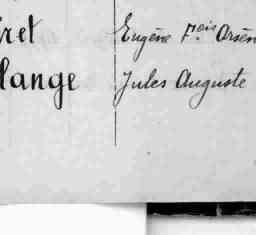 ret Eugène F.ois Arsèn
lange Jules Auguste